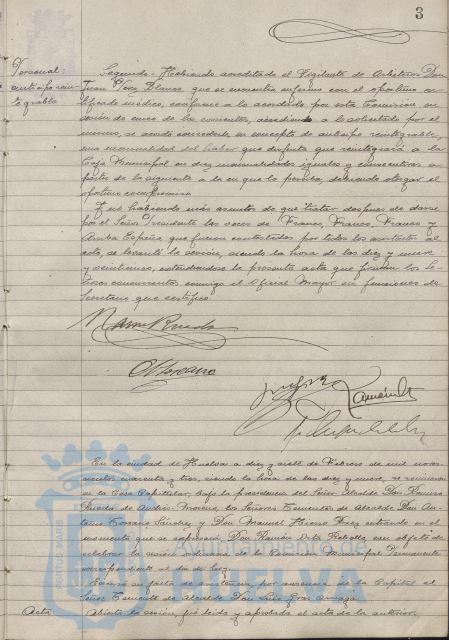 3
Personal:
anticipo rein-
tegrable
Segundo.- Habiendo acreditado el Vigilante de Arbitrios Don
Juan Vera Blanco que se encuentra enfermo con el oportuno cer-
tificado médico, conforme a lo acordado por esta Comisión en
sesión de once de los corrientes, accediendo a lo solicitado por el
mismo, se acordó concederle, en concepto de anticipo reintegrable,
una mensualidad del haber que disfruta que reintegrará a la
Caja Municipal en diez mensualidades iguales y consecutivas a
partir de la siguiente a la en que la perciba, debiendo otorgar el
oportuno compromiso.
Y no habiendo más asuntos de que tratar después de darse
por el Señor Presidente las voces de Franco, Franco, Franco y
Arriba España que fueron contestadas por todos los asistentes al
acto, se levantó la sesión, siendo la hora de las diez y nueve
y veintiuno, extendiéndose la presente acta que firman los Se-
ñores concurrentes conmigo el Oficial Mayor en funciones de
Secretario que certifico.
En la ciudad de Huelva a diez y siete de Febrero de mil nove-
cientos cuarenta y tres, siendo la hora de las diez y nueve, se reunieron
en la Casa Capitular, bajo la presidencia del Señor Alcalde Don Ramiro
Rueda de Andrés Moreno, los Señores Tenientes de Alcalde Don An-
tonio Toscano Sánchez y Don Manuel Flores entrando en el
momento que se expresará Don Ramón con objeto de
celebrar la sesión ordinaria de la Comisión Municipal Permanente
correspondiente al día de hoy.
Excusó su falta de asistencia, por ausencia de la Capital el
Señor Teniente de Alcalde Don Luis
Acta
Abierta la sesión, fué leída y aprobada el acta de la anterior.
Ayuntamiento de
HUELVA
PORTUS MARIS